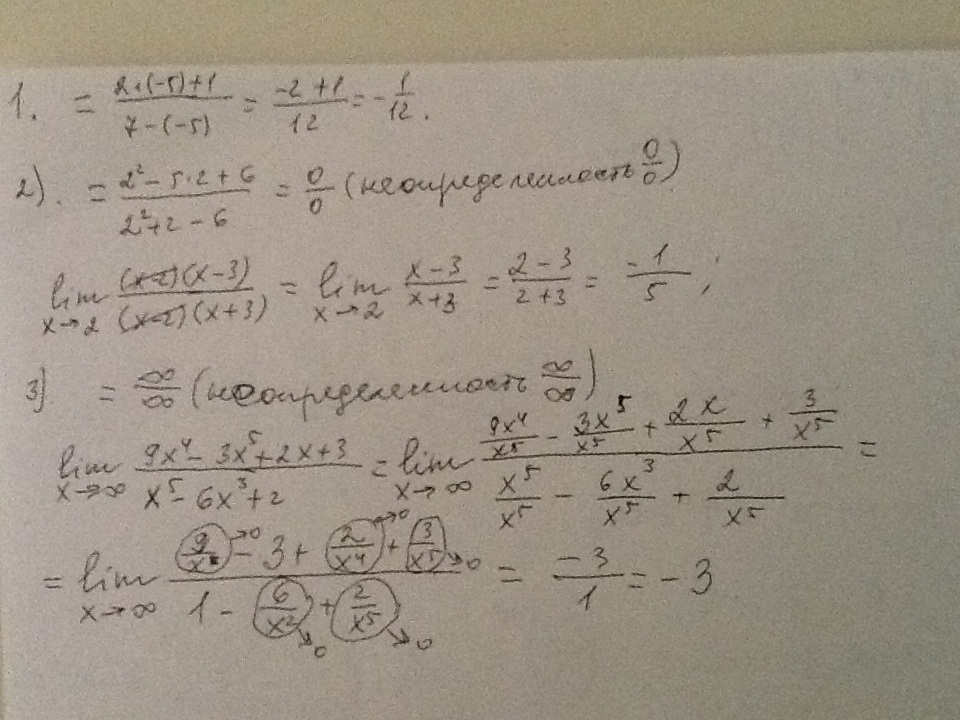 1. = \frac{2·(-5)+1}{7-(-5)} = \frac{-2+1}{12} = -\frac{1}{12}.
2). = \frac{2^2-5·2+6}{2^2+2-6} = \frac{0}{0} (неопределенность \frac{0}{0})
lim_{x→2} \frac{(x-2)(x-3)}{(x-2)(x+3)} = lim_{x→2} \frac{x-3}{x+3} = \frac{2-3}{2+3} = \frac{-1}{5};
3) = \frac{∞}{∞} (неопределенность \frac{∞}{∞})
lim_{x→∞} \frac{9x^4-3x^5+2x+3}{x^5-6x^3+2} = lim_{x→∞} \frac{\frac{9x^4}{x^5}-\frac{3x^5}{x^5}+\frac{2x}{x^5}+\frac{3}{x^5}}{\frac{x^5}{x^5}-\frac{6x^3}{x^5}+\frac{2}{x^5}} =
= lim_{x→∞} \frac{\frac{9}{x}→0 - 3 + \frac{2}{x^4}→0 + \frac{3}{x^5}→0}{1 - \frac{6}{x^2}→0 + \frac{2}{x^5}→0} = \frac{-3}{1} = -3